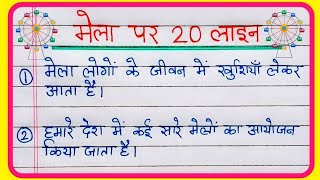 मेला पर 20 लाइन
① मेला लोगों के जीवन में खुशियाँ लेकर
आता है।
② हमारे देश में कई सारे मेलों का आयोजन
किया जाता है।